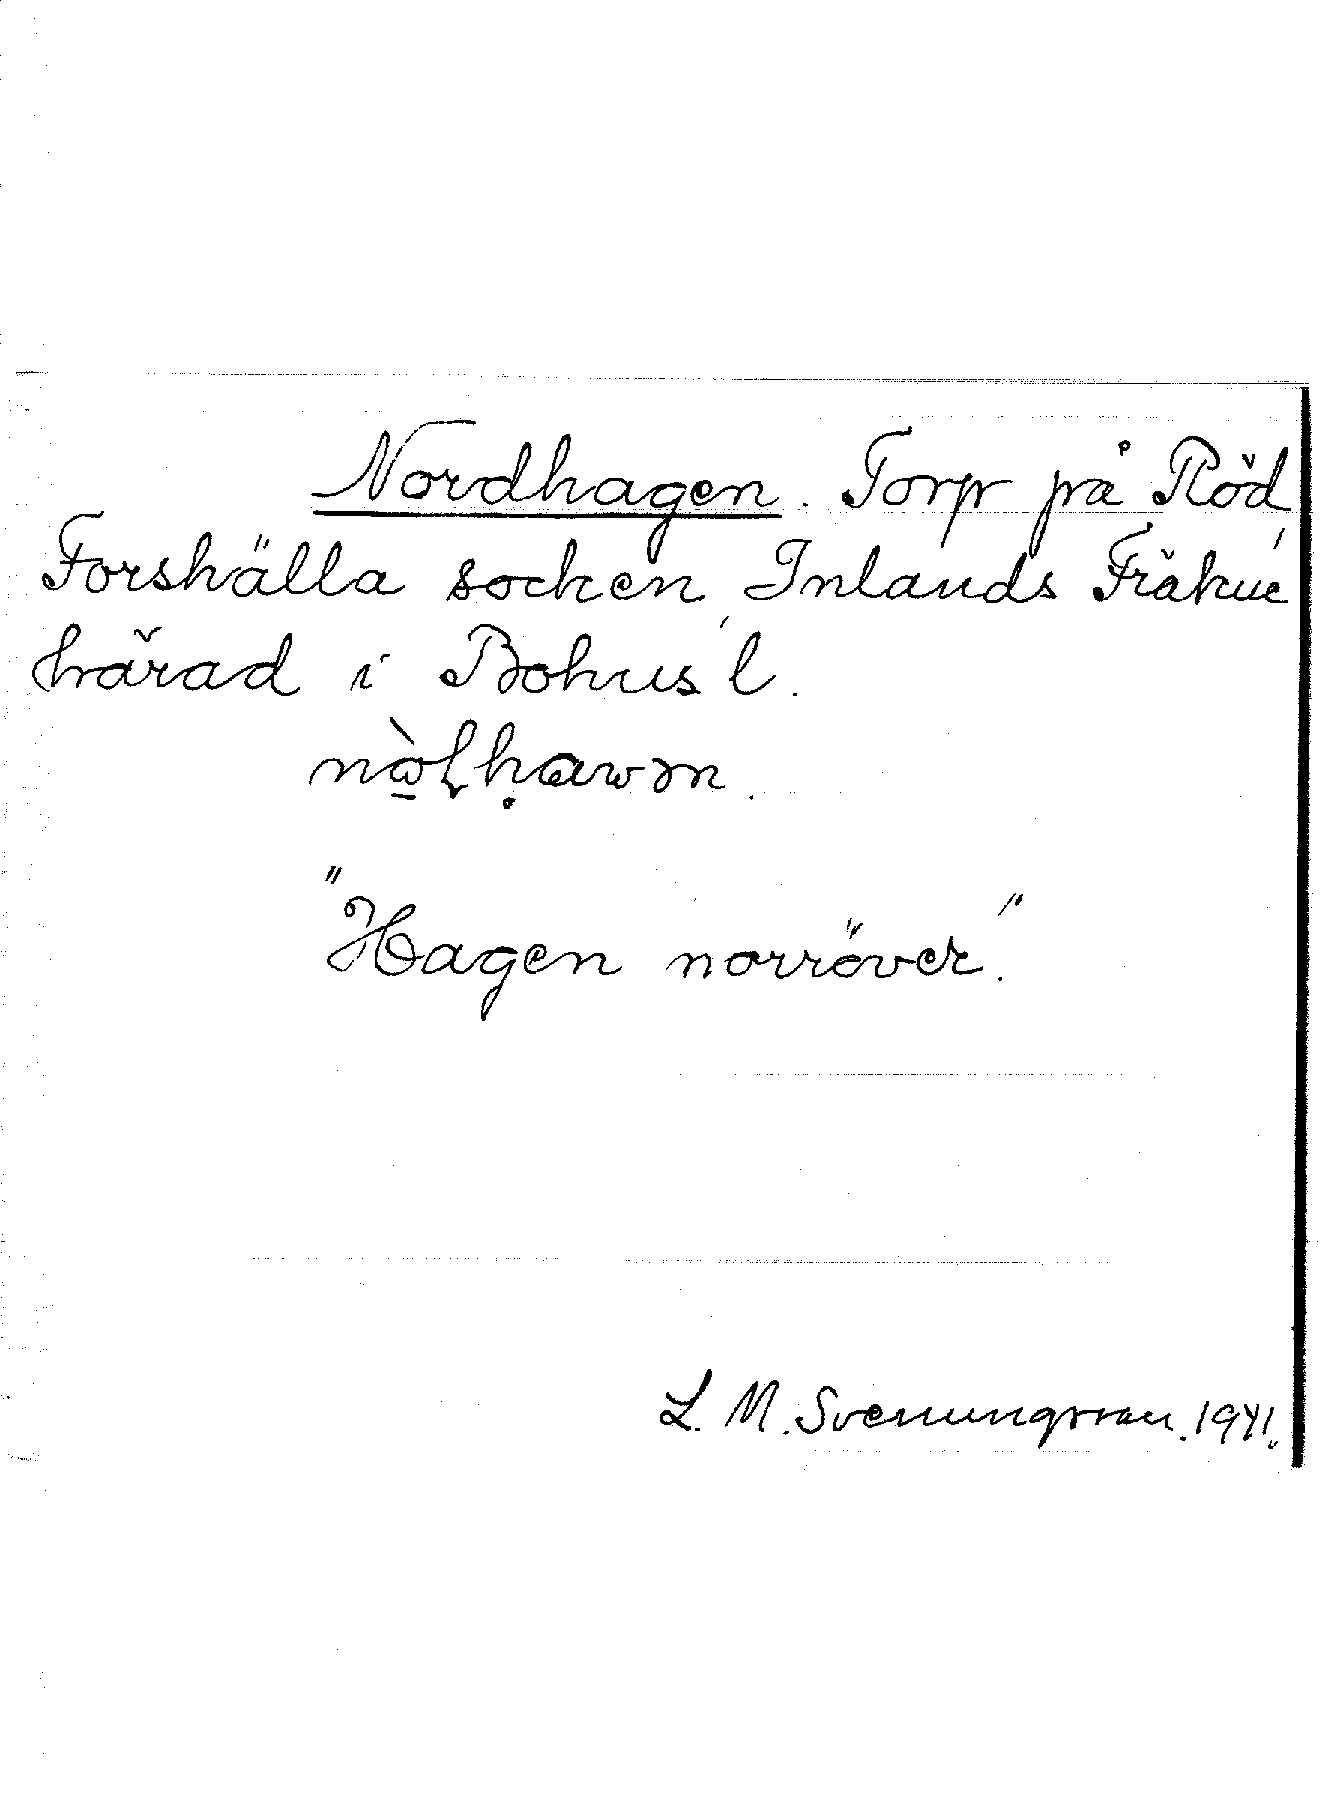 Nordhagen. Torp på Röd,
Forshälla socken, Inlands Fräkne
härad i Bohus l.
"Hagen norröver."
L. M. Svenungsson. 1941.